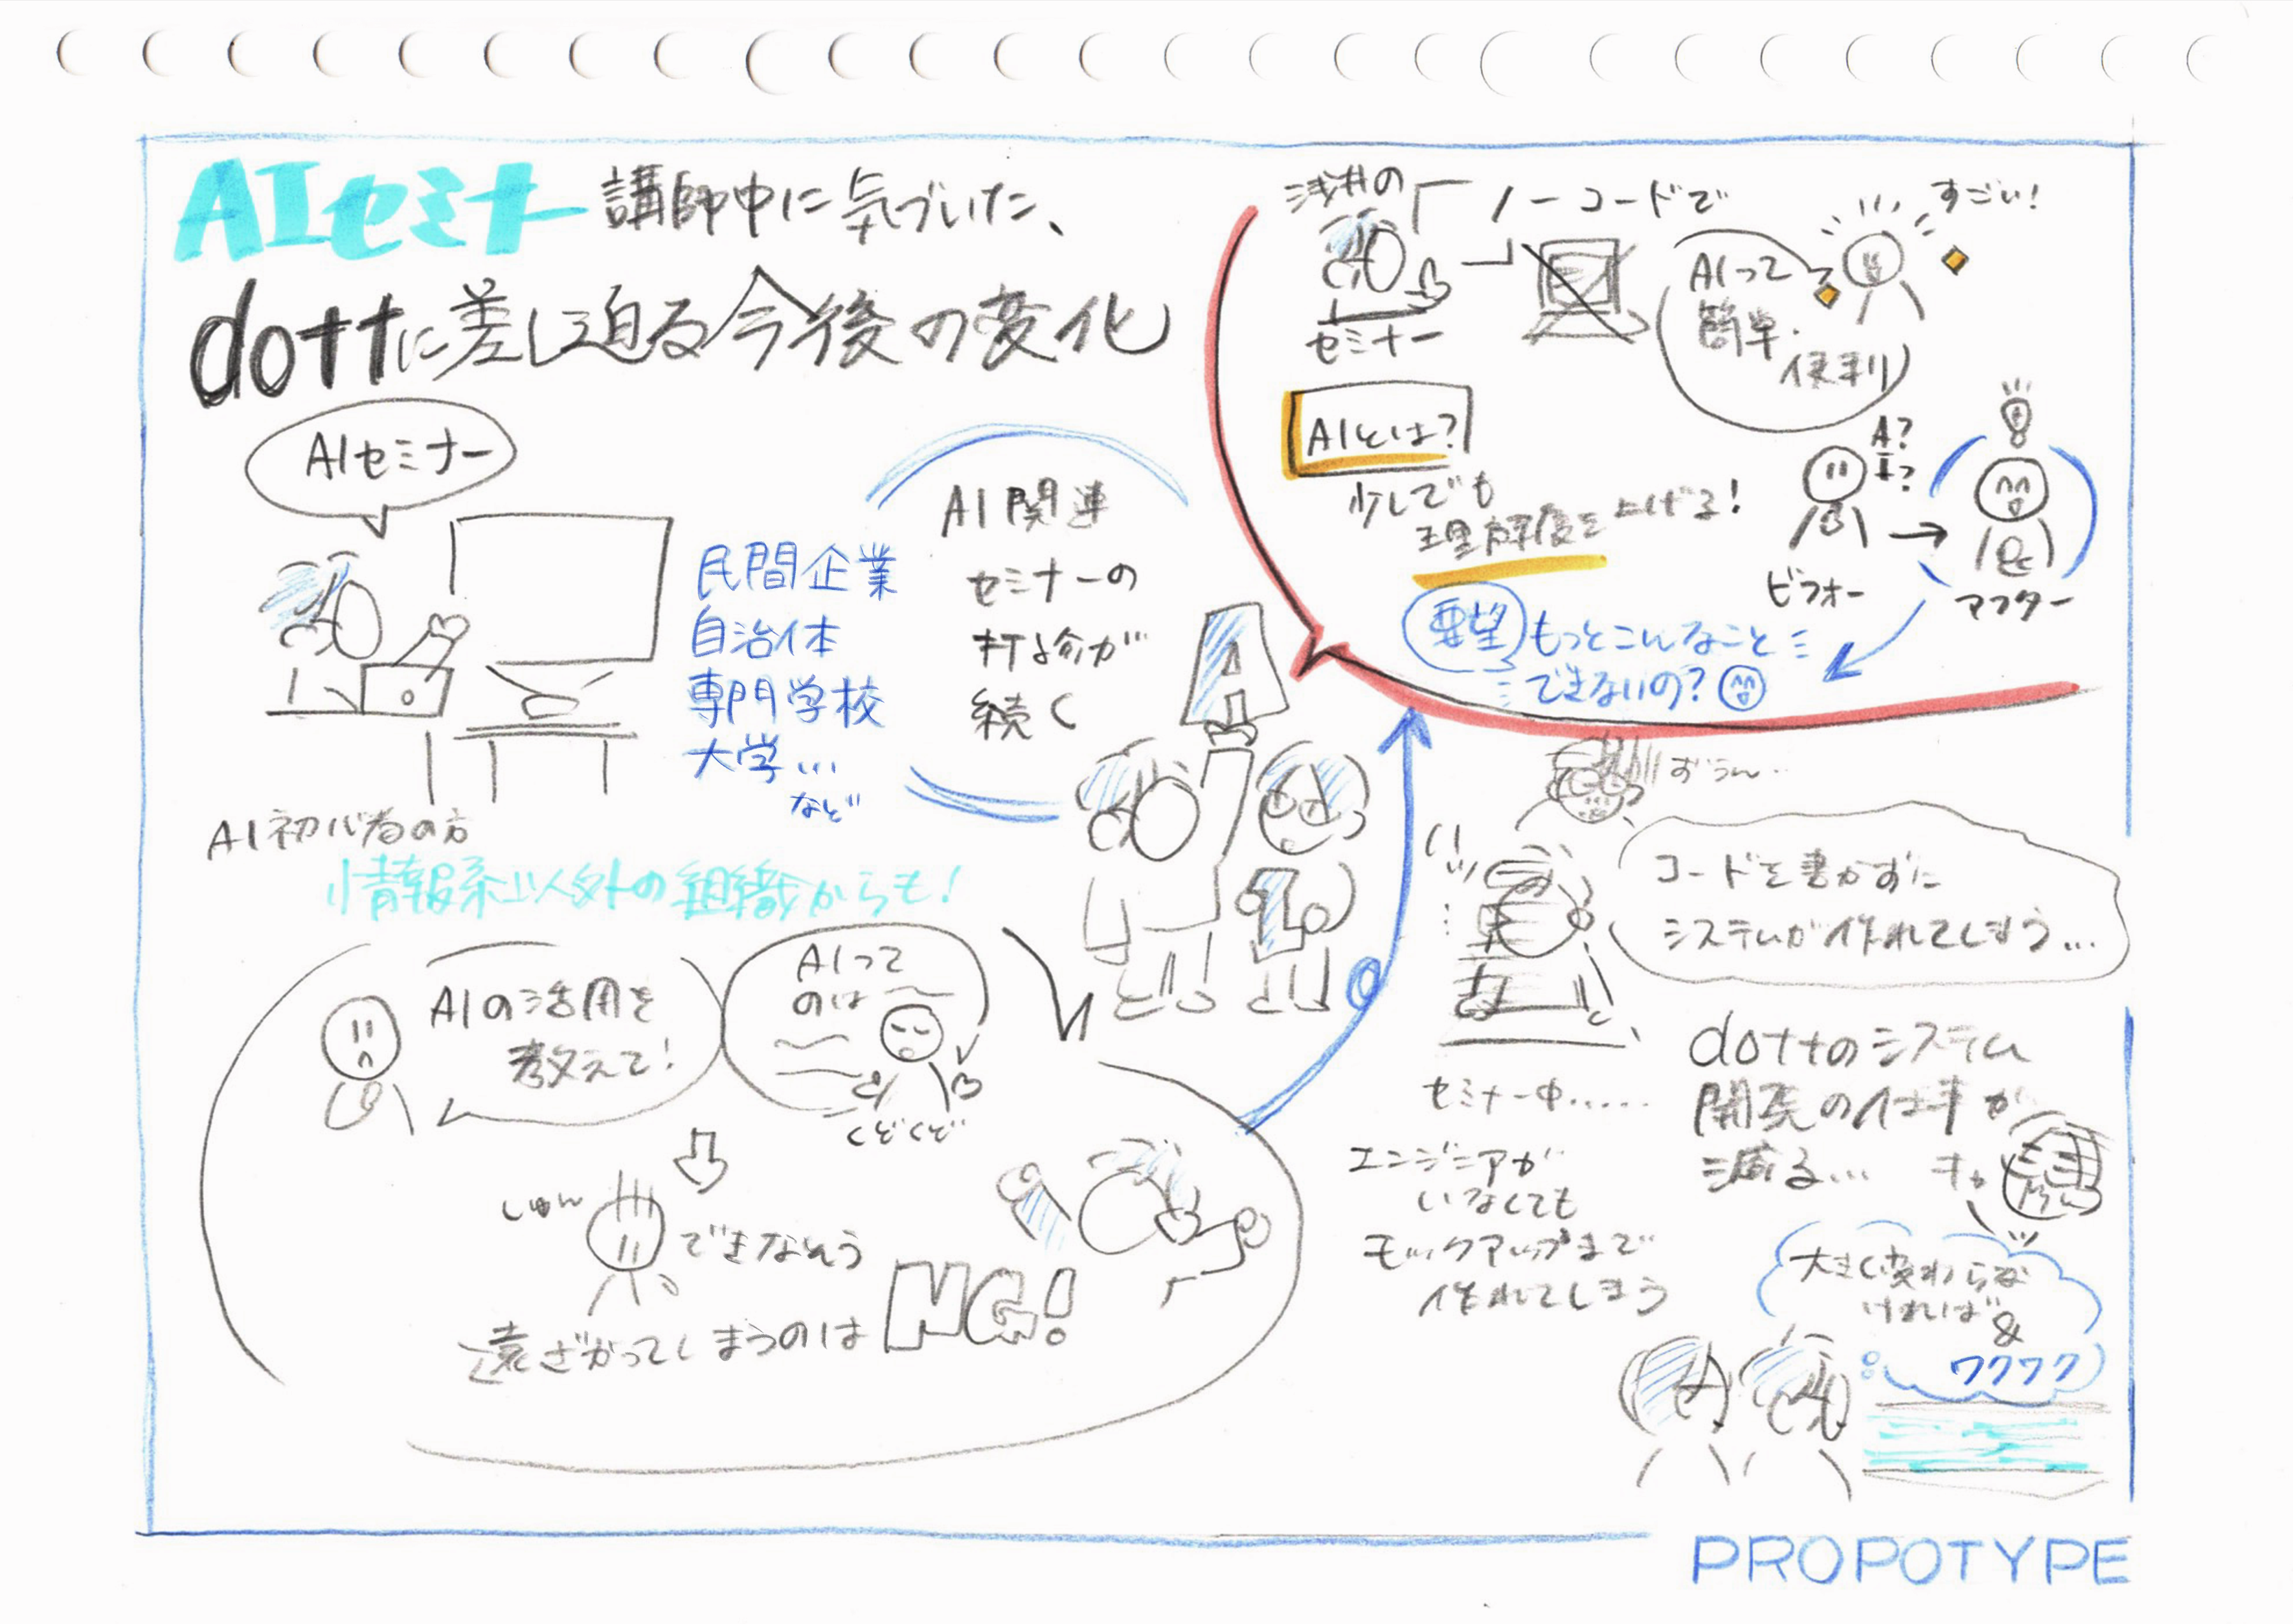 AIセミナー講師中に気づいた、
dottに差し迫る今後の変化
AIセミナー
民間企業
自治体
専門学校
大学...
など
AI関連
セミナーの
打診が
続く
AI
AI初心者の方
情報系以外の組織からも!
AIの活用を
教えて!
AIって
のは
くどくど
しゅん
できなそう
遠ざかってしまうのは
NG!
浅井の
セミナー
「ノーコードで」
AIって
簡単・
便利
すごい!
AIとは?
少しでも
理解度を上げる!
A?
I?
ビフォー
アフター
要望
もっとこんなこと
できないの?
コードを書かずに
システムが作れてしまう...
セミナー中.....
エンジニアが
いなくても
モックアップまで
作れてしまう
dottのシステム
開発の仕事が
減る...
大きく変わらな
ければ
&
ワクワク
PROPOTYPE